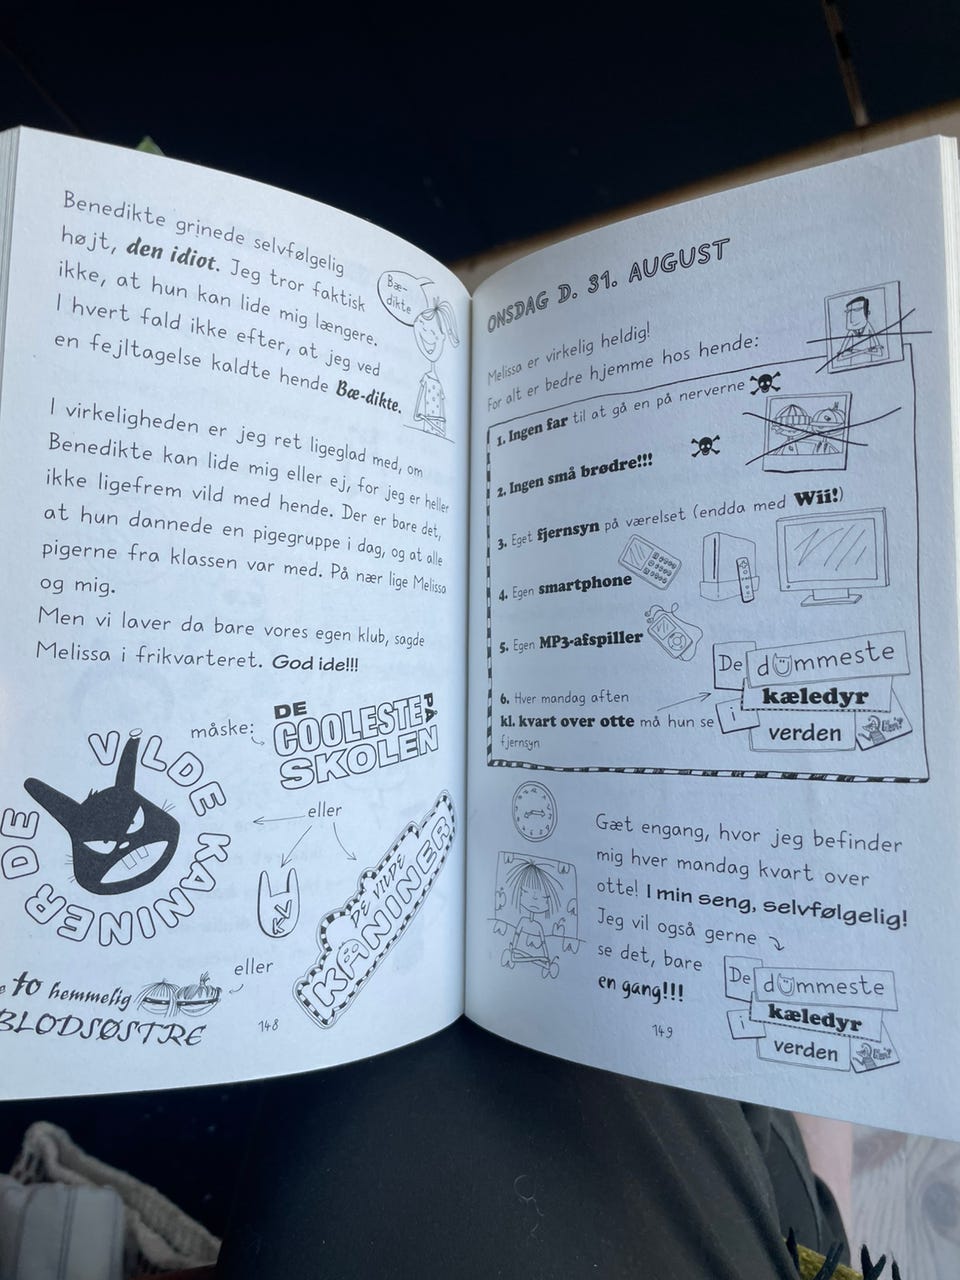 Benedikte grinede selvfølgelig
højt, den idiot. Jeg tror faktisk
ikke, at hun kan lide mig længere.
I hvert fald ikke efter, at jeg ved
en fejltagelse kaldte hende Bæ-dikte.
Bæ-
dikte
I virkeligheden er jeg ret ligeglad med, om
Benedikte kan lide mig eller ej, for jeg er heller
ikke ligefrem vild med hende. Der er bare det,
at hun dannede en pigegruppe i dag, og at alle
pigerne fra klassen var med. På nær lige Melissa
og mig.
Men vi laver da bare vores egen klub, sagde
Melissa i frikvarteret. God ide!!!
måske:
DE
COOLESTE PÅ
SKOLEN
eller
DE VILDE KANINER
DE VILDE
KANINER
eller
to hemmelig
BLODSØSTRE
148
ONSDAG D. 31. AUGUST
Melissa er virkelig heldig!
For alt er bedre hjemme hos hende:
1. Ingen far til at gå en på nerverne
2. Ingen små brødre!!!
3. Eget fjernsyn på værelset (endda med Wii!)
4. Egen smartphone
5. Egen MP3-afspiller
6. Hver mandag aften
kl. kvart over otte må hun se
fjernsyn
De dummeste
kæledyr
i verden
Gæt engang, hvor jeg befinder
mig hver mandag kvart over
otte! I min seng, selvfølgelig!
Jeg vil også gerne
se det, bare
en gang!!!
De dummeste
kæledyr
i verden
149